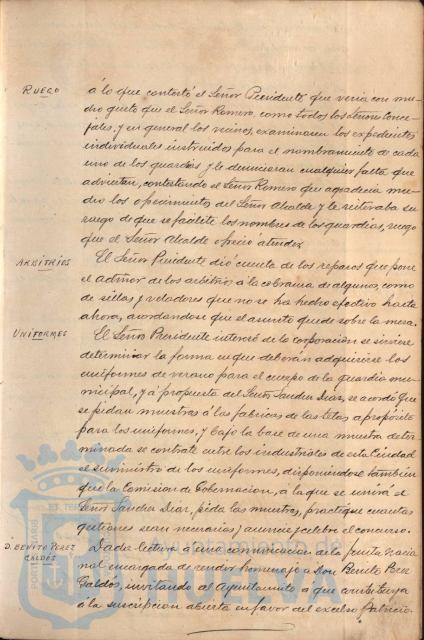 RUEGO
á lo que contestó el Señor Presidente que vería con mu-
cho gusto que el Señor Romero, como todos los Señores conce-
jales, y en general los vecinos, examinasen los expedientes
individuales instruidos para el nombramiento de cada
uno de los guardias y le denunciaran cualquier falta que
advirtan, contestando el Señor Romero que agradecía mu-
cho los ofrecimientos del Señor Alcalde y le reiteraba su
ruego de que se facilite los nombres de los guardias, ruego
que el Señor Alcalde ofreció atender.
ARBITRIOS
El Señor Presidente dió cuenta de los reparos que pone
el Admor de los arbitrios á la cobranza de algunos, como
de sillas y veladores que no se ha hecho efectivo hasta
ahora, acordándose que el asunto quede sobre la mesa.
UNIFORMES
El Señor Presidente interesó de la corporación se sirviere
determinar la forma en que deberán adquirirse los
uniformes de verano para el cuerpo de la guardia mu-
nicipal, y á propuesta del Señor Sanchez Diaz, se acordó que
se pidan muestras á las fabricas de las telas á propósito
para los uniformes, y bajo la base de una muestra deter-
minada se contrate entre los industriales de esta Ciudad
el suministro de los uniformes, disponiendose también
que la Comision de Gobernacion, á la que se unirá el
Señor Sanchez Diaz, pida las muestras, practique cuantas
gestiones sean necesarias y anuncie y celebre el concurso.
D. BENITO PEREZ
GALDÓS
Dada lectura á una comunicacion de la Junta Nacio-
nal encargada de rendir homenaje á Don Benito Perez
Galdós, invitando al Ayuntamiento á que contribuya
á la suscripcion abierta en favor del excelso patricio.
Ayuntamiento de
HUELVA